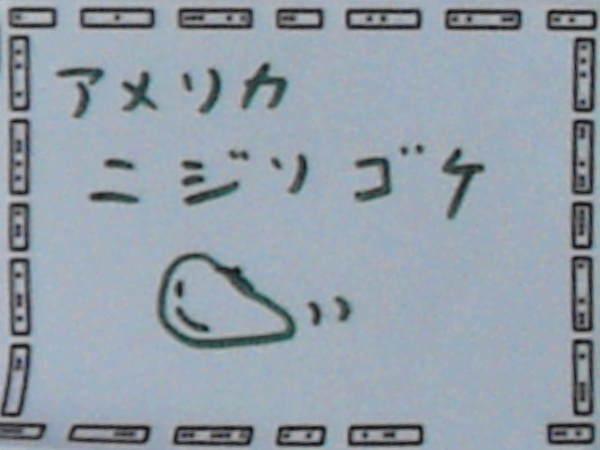 アメリカ
ニジリゴケ